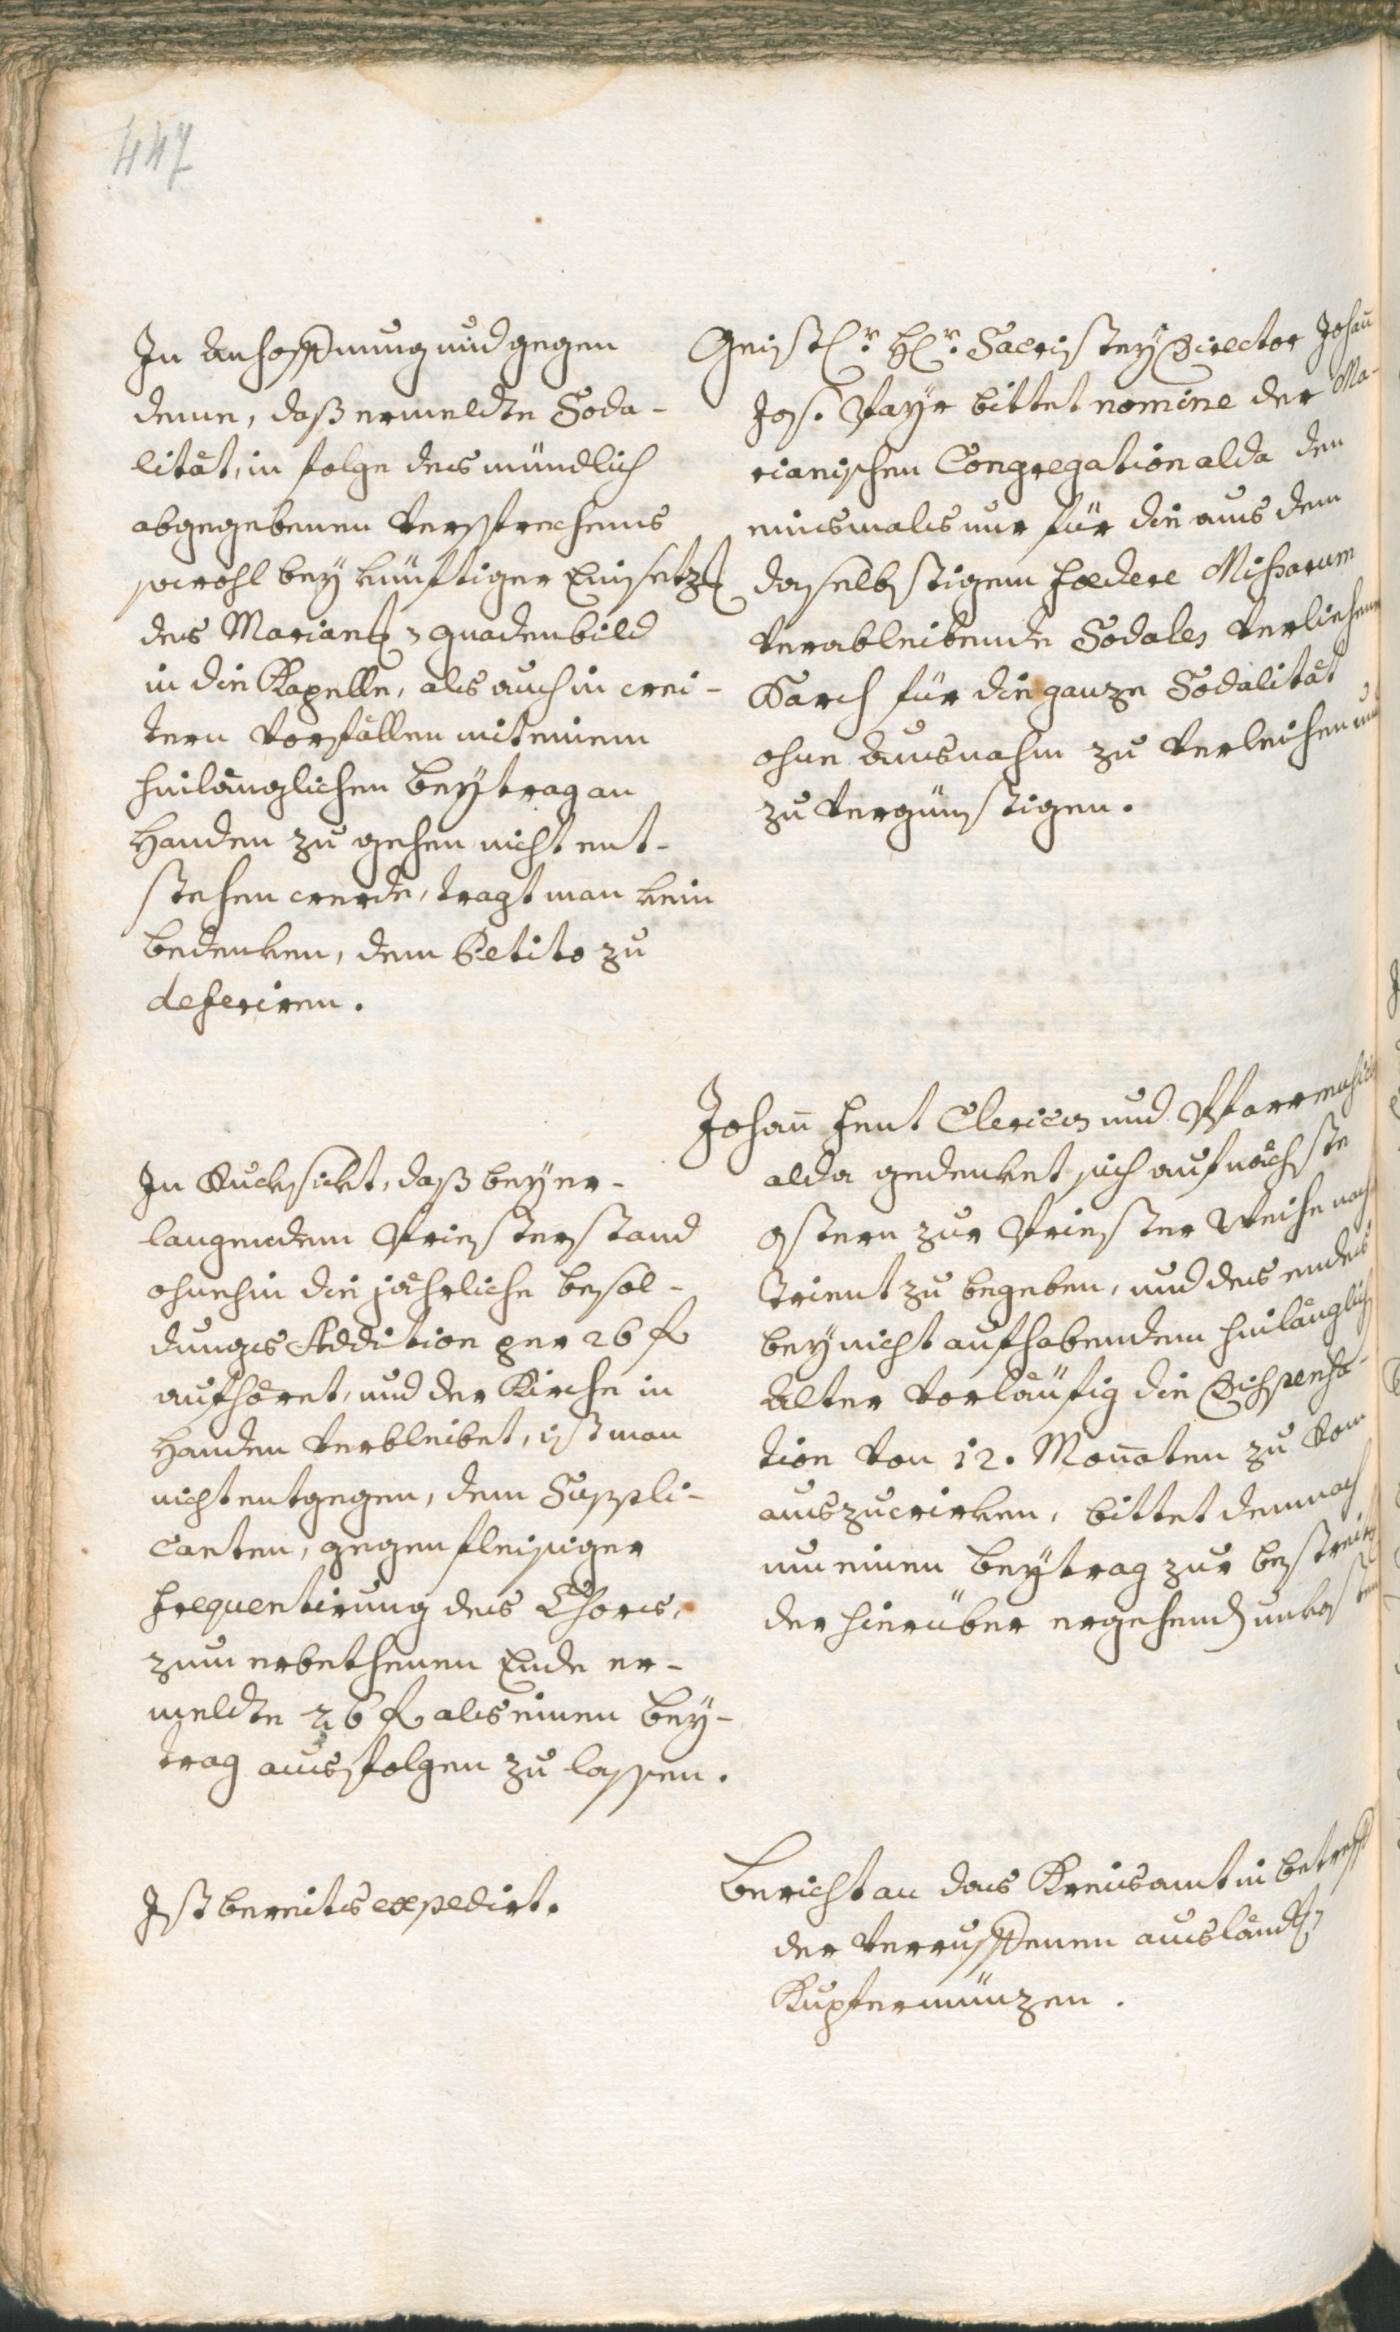 447
In Anhoffnung und gegen
deme, daß ermeldte Soda-
lität, in folge des mündlich
abgegebenen Versprechens
sowohl bey künftiger Einsetzg
des Marianl: gnadenbild
in die Kapelle, als auch in wei-
tern Vorfällen mit einem
hinlänglichen Beytrag an
Handen zu gehen nicht ent-
stehen werde, tragt man kein
bedenken, dem Petito zu
deferiren.
In Rucksicht, daß bey er-
langendem Priesterstand
ohnehin die jährliche besol-
dungs Addition per 26 f
aufhöret, und der Kirche in
Handen verbleibet, ist man
nicht entgegen, dem Suppli-
canten, gegen fleissiger
frequentirung des Chors,
zum erbethenen Ende er-
meldte 26 f als einen Bey-
trag ausfolgen zu lassen.
Ist bereits expedirt.
Geistlr. Hr. Sacristey Director Johann
Jos. Payr bittet nomine der Ma-
rianischen Congregation alda den
einsmals nur für die aus dem
daselbstigem foedere Missarum
verableibende Sodales verliehenen
Sarch für die ganze Sodalität
ohne ausnahm zu verleihen und
zu vergünstigen.
Johann Fent Clericus und Pfarrmusicus
alda gedenket sich auf nächste
ostern zur Priester Weihe nach
Trient zu begeben, und des endes
bey nicht aufhabendem hinlänglich
Alter vorläufig die Dispensa-
tion von 12. Monaten zu Rom
auszuwirken, bittet demnach
um einen Beytrag zur bestreitg
der hierüber ergehend unkosten
Bericht an das Kreisamt in betreff
der verruffenen ausländl:
Kupfermünzen.